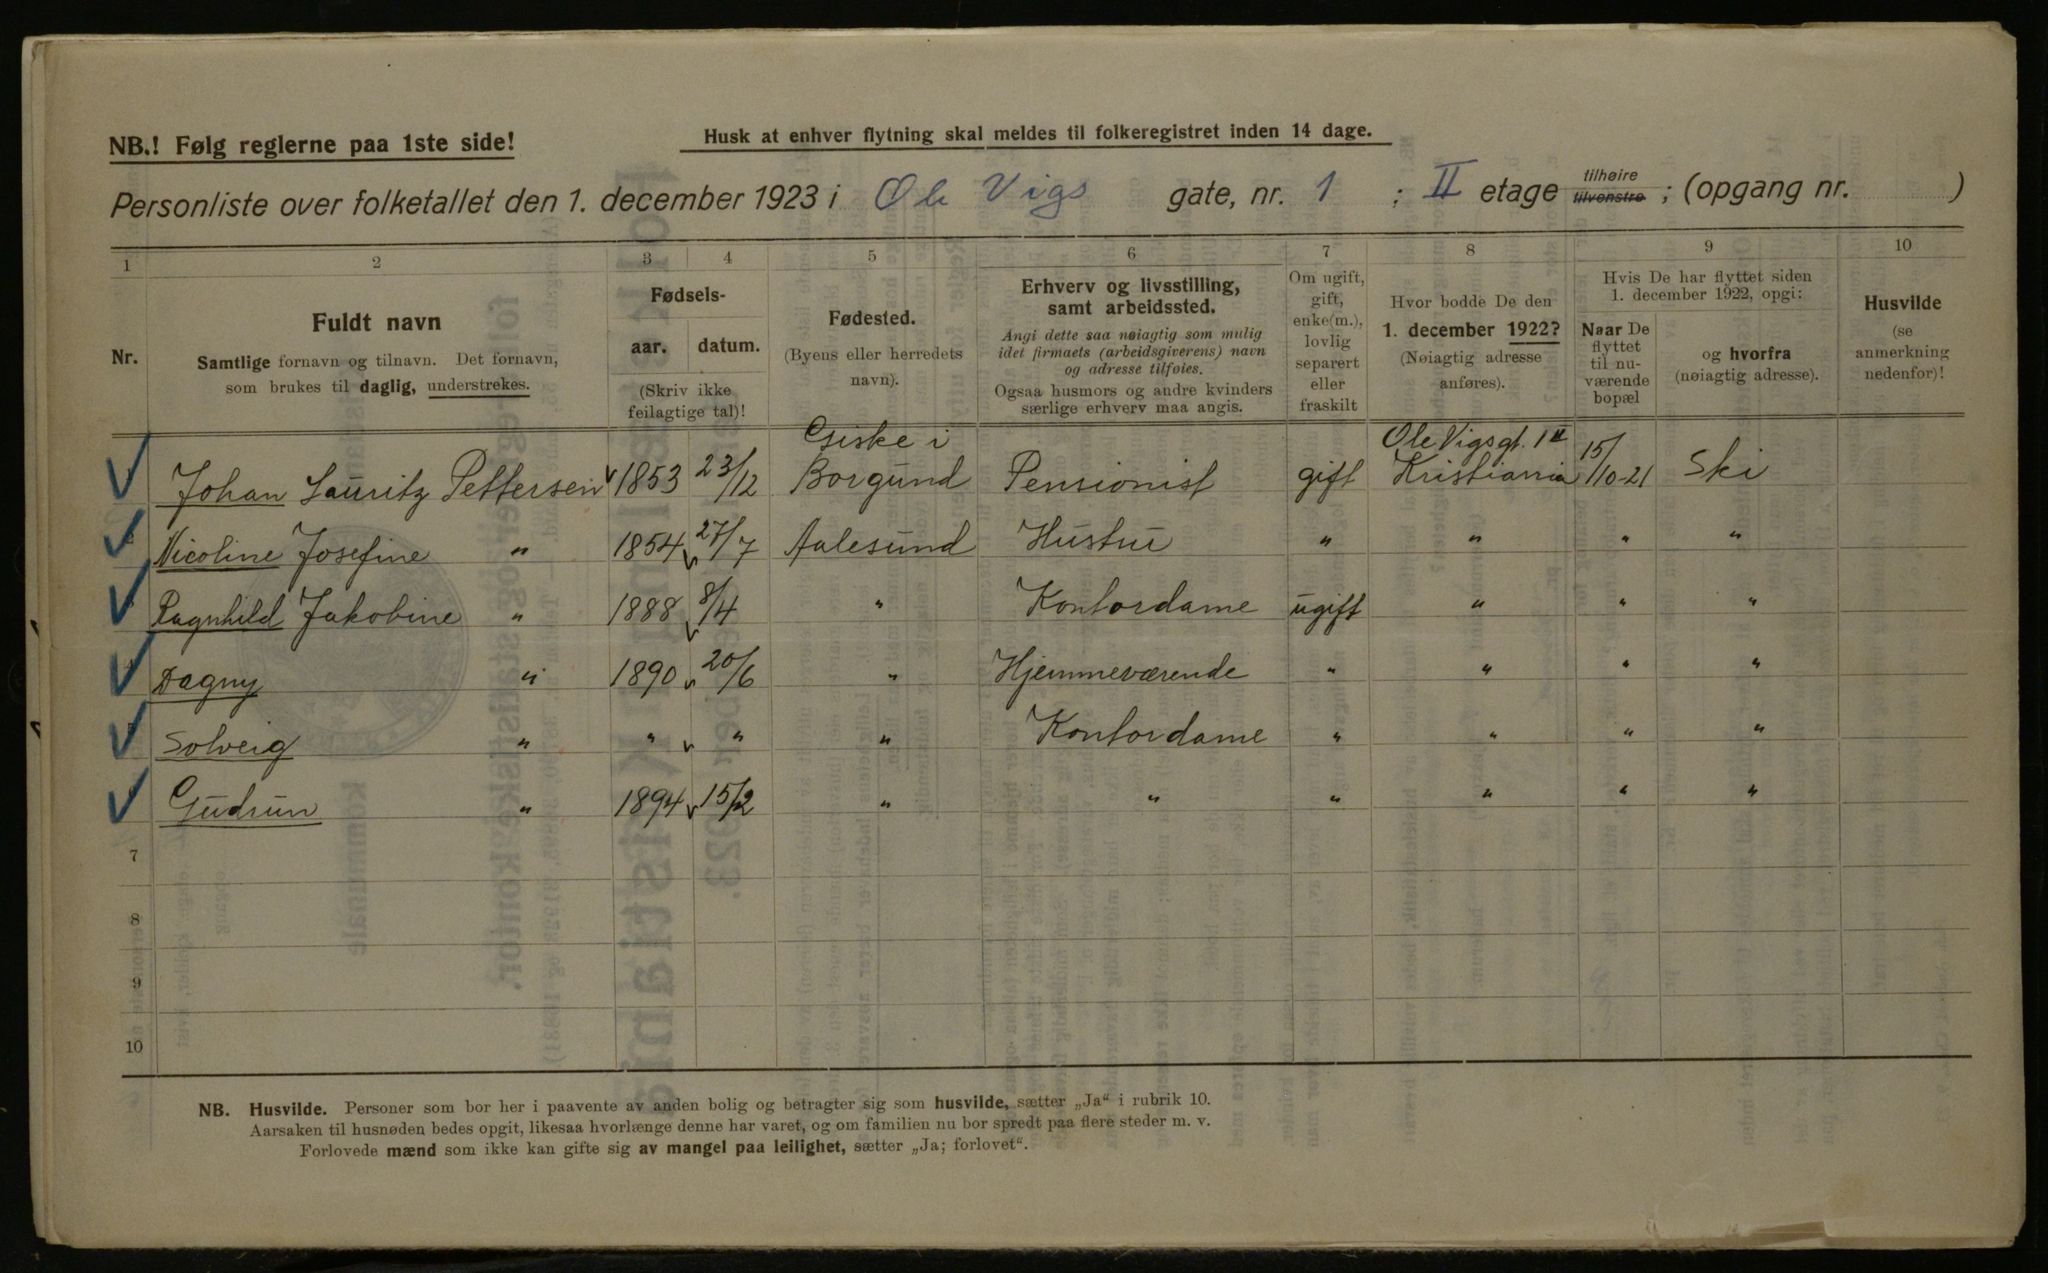 NB.! Følg reglerne paa 1ste side!
Husk at enhver flytning skal meldes til folkeregistret inden 14 dage.
Personliste over folketallet den 1. december 1923 i Ole Vigs gate, nr. 1 ; II etage tilhøire tilvenstre ; (opgang nr. )
1 2 3 4 5 6 7 8 9 10
Nr.
Fuldt navn
Samtlige fornavn og tilnavn. Det fornavn,
som brukes til daglig, understrekes.
Fødsels-
aar. datum.
(Skriv ikke
feilagtige tal)!
Fødested.
(Byens eller herredets
navn).
Erhverv og livsstilling,
samt arbeidssted.
Angi dette saa nøiagtig som mulig
idet firmaets (arbeidsgiverens) navn
og adresse tilføies.
Ogsaa husmors og andre kvinders
særlige erhverv maa angis.
Om ugift,
gift,
enke(m.),
lovlig
separert
eller
fraskilt
Hvor bodde De den
1. december 1922?
(Nøiagtig adresse
anføres).
Hvis De har flyttet siden
1. december 1922, opgi:
Naar De
flyttet
til nu-
værende
bopæl
og hvorfra
(nøiagtig adresse).
Husvilde
(se
anmerkning
nedenfor)!
Giske i Ole Vigsgt. 1 II
Johan Lauritz Pettersen 1853 23/12 Borgund Pensionist gift Kristiania 15/10-21 Ski
Nicoline Josefine " 1854 27/7 Aalesund Hustru " " " "
Ragnhild Jakobine " 1888 8/4 " Kontordame ugift " " "
Dagny " 1890 20/6 " Hjemmeværende " " " "
Solveig " " " " Kontordame " " " "
Gudrun " 1894 15/2 " " " " " "
7
8
9
10
NB. Husvilde. Personer som bor her i paavente av anden bolig og betragter sig som husvilde, sætter „Ja“ i rubrik 10.
Aarsaken til husnøden bedes opgit, likesaa hvorlænge denne har varet, og om familien nu bor spredt paa flere steder m. v.
Forlovede mænd som ikke kan gifte sig av mangel paa leilighet, sætter „Ja; forlovet“.